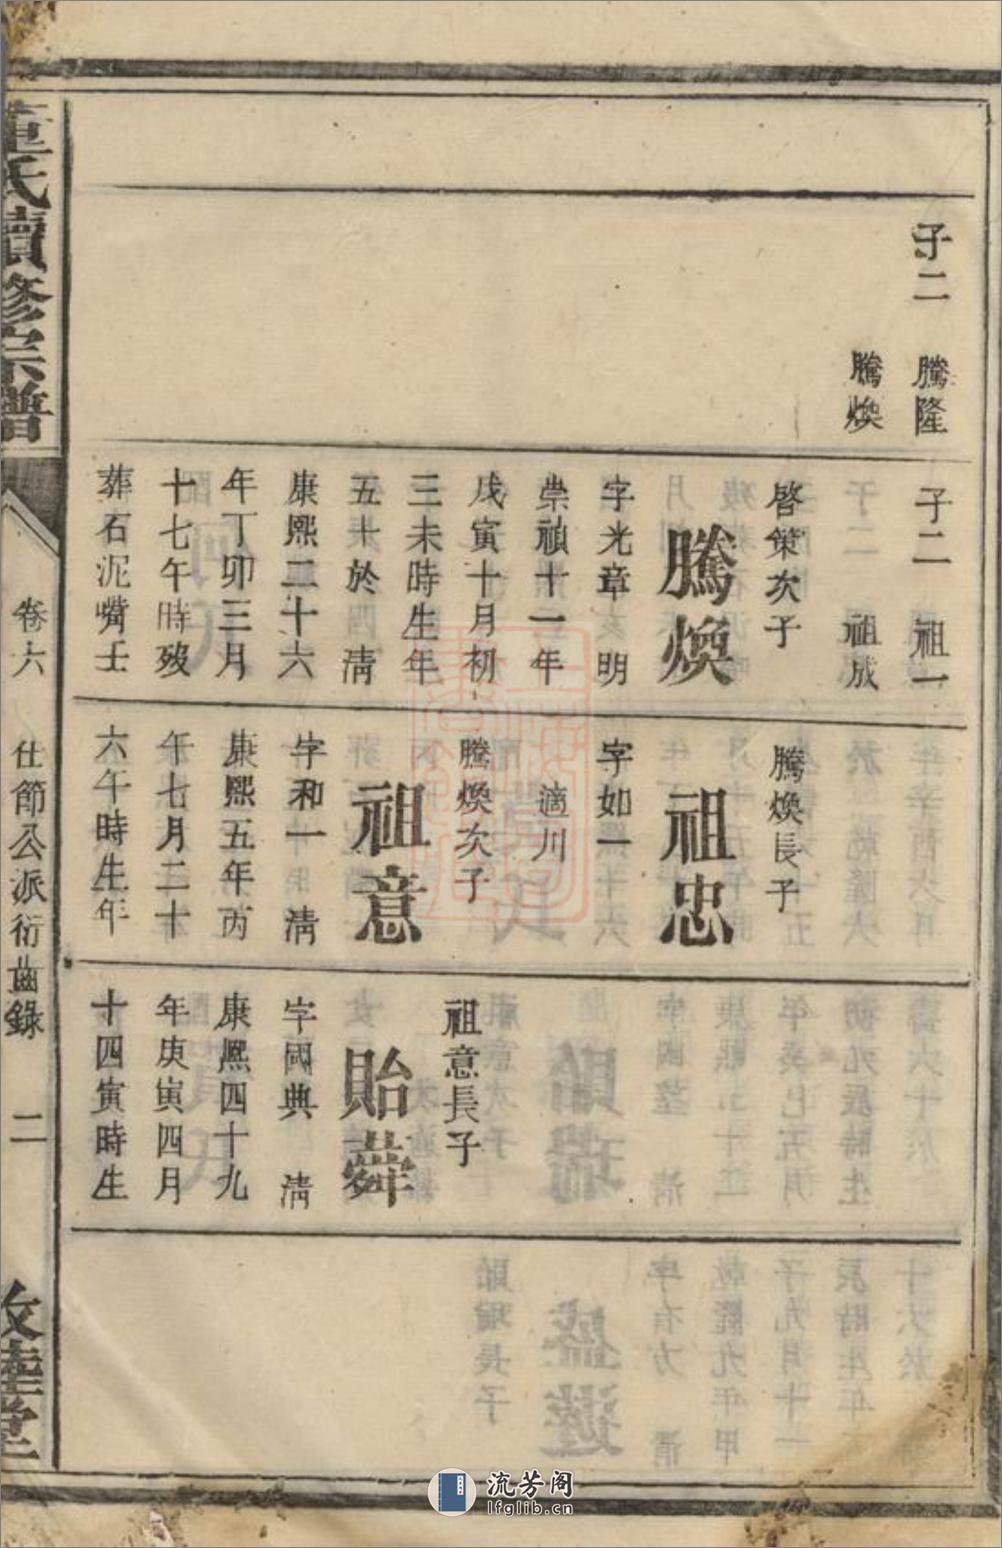 子二　騰隆
騰煥
子二　祖一
祖成
啓策次子
騰煥
字光章　明
崇禎十一年
戊寅十月初
三未時生年
五十於　淸
康熙二十六
年丁卯三月
十七午時歿
葬石泥嘴壬
騰煥長子
祖忠
字如一
適川
騰煥次子
祖意
字和一　淸
康熙五年丙
午七月二十
六午時生年
祖意長子
貽舜
字國典　淸
康熙四十九
年庚寅四月
十四寅時生
氏續修宗譜
卷六　仕節公派衍齒錄　二
堂
流芳阁
lfglib.cn